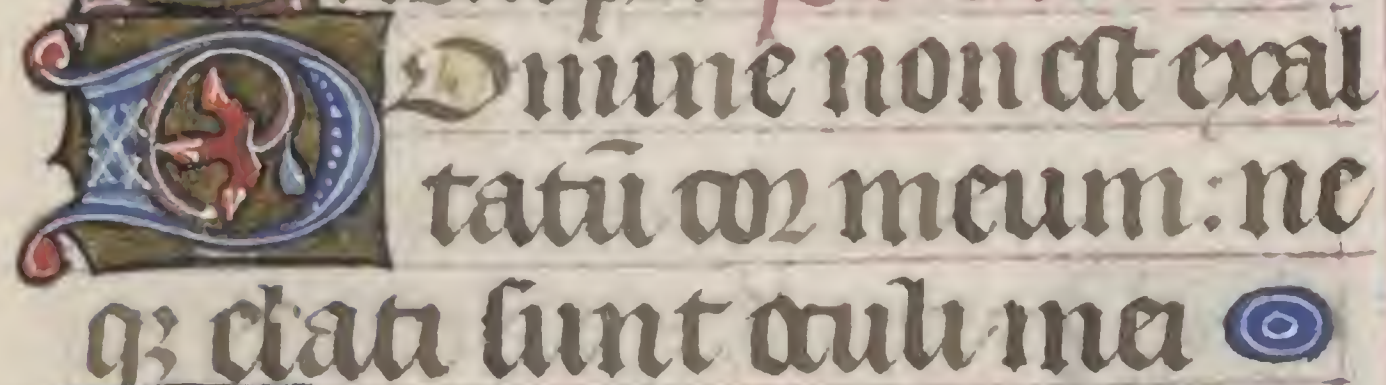 DOmine non est exal
tatū cor meum: ne
qꝫ elati sunt oculi mei